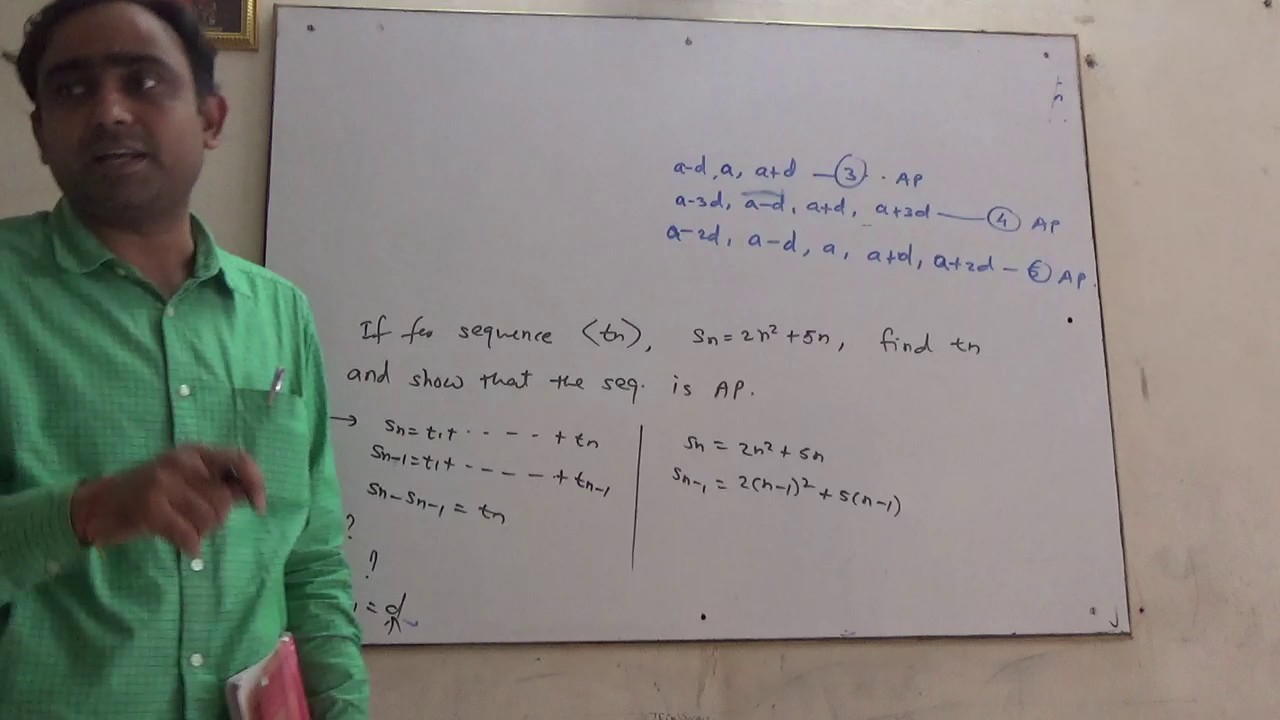 a-d, a, a+d —③ . AP
a-3d, a-d, a+d, a+3d —④ AP
a-2d, a-d, a, a+d, a+2d - ⑤ AP.
If for sequence ⟨tn⟩, Sn = 2n² + 5n, find tn
and show that the seq. is AP.
→ Sn = t₁ + - - - - + tn
Sn-1 = t₁ + - - - - - + tn-1
Sn - Sn-1 = tn
?
?
= d
Sn = 2n² + 5n
Sn-1 = 2(n-1)² + 5(n-1)